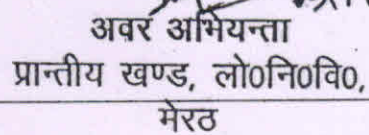 अवर अभियन्ता
प्रान्तीय खण्ड, लो0नि0वि0,
मेरठ